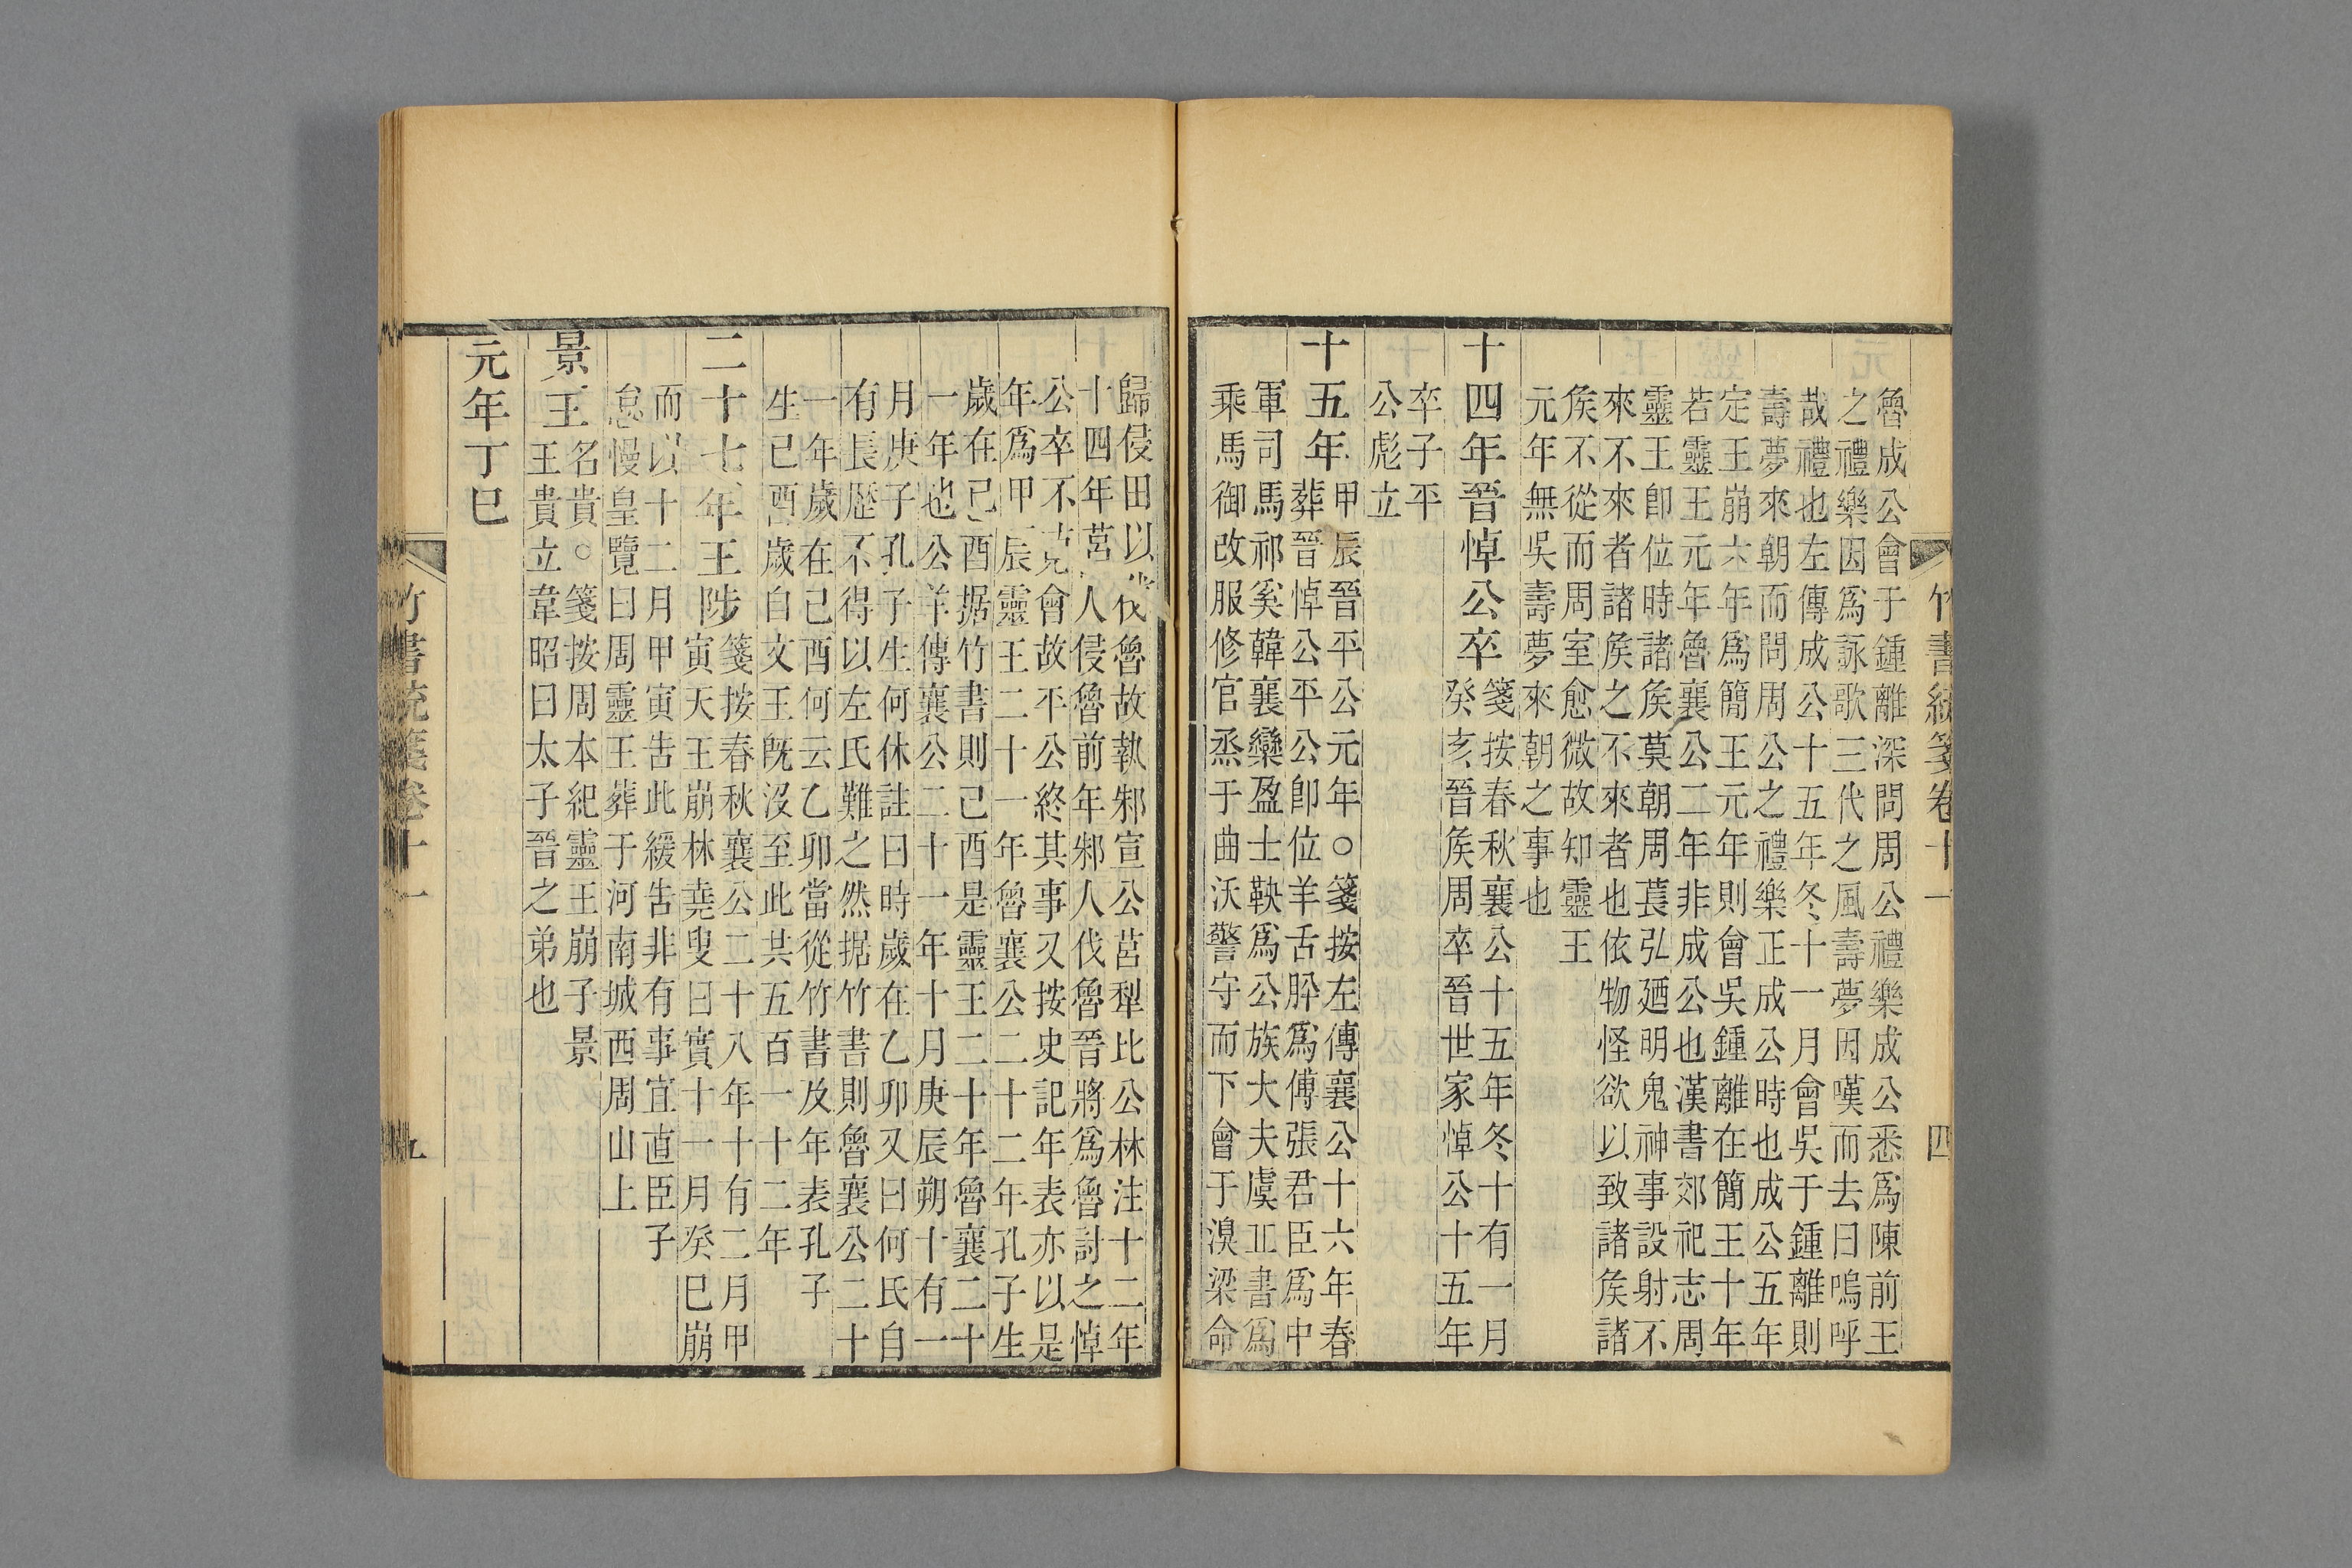 竹書統箋卷十一
四
魯成公會于鍾離深問周公禮樂成公悉爲陳前王
之禮樂因爲詠歌三代之風壽夢因嘆而去曰嗚呼
哉禮也左傳成公十五年冬十一月會吳于鍾離則
壽夢來朝而問周公之禮樂正成公時也成公五年
定王崩六年爲簡王元年則會吳鍾離在簡王十年
若靈王元年魯襄公二年非成公也漢書郊祀志周
靈王卽位時諸矦莫朝周萇弘廼明鬼神事設射不
來不來者諸矦之不來者也依物怪欲以致諸矦諸
矦不從而周室愈微故知靈王
元年無吳壽夢來朝之事也
十四年晉悼公卒
箋按春秋襄公十五年冬十有一月
癸亥晉矦周卒晉世家悼公十五年
卒子平
公彪立
十五年
甲辰晉平公元年○箋按左傳襄公十六年春
葬晉悼公平公卽位羊舌肸爲傅張君臣爲中
軍司馬祁奚韓襄欒盈士鞅爲公族大夫虞丘書爲
乘馬御改服修官烝于曲沃警守而下會于溴梁命
歸侵田以伐魯故執邾宣公莒犁比公林注十二年
十四年莒人侵魯前年邾人伐魯晉將爲魯討之悼
公卒不克會故平公終其事又按史記年表亦以是
年爲甲辰靈王二十一年魯襄公二十二年孔子生
歲在己酉据竹書則己酉是靈王二十年魯襄二十
一年也公羊傳襄公二十一年十月庚辰朔十有一
月庚子孔子生何休註曰時歲在乙卯又曰何氏自
有長歷不得以左氏難之然据竹書則魯襄公二十
一年歲在己酉何云乙卯當從竹書及年表孔子
生己酉歲自文王旣沒至此共五百一十二年
二十七年王陟
箋按春秋襄公二十八年十有二月甲
寅天王崩林堯叟曰實十一月癸巳崩
而以十二月甲寅告此緩告非有事宜直臣子
怠慢皇覽曰周靈王葬于河南城西周山上
景王
名貴○箋按周本紀靈王崩子景
王貴立韋昭曰太子晉之弟也
元年丁巳
竹書統箋卷十一
九